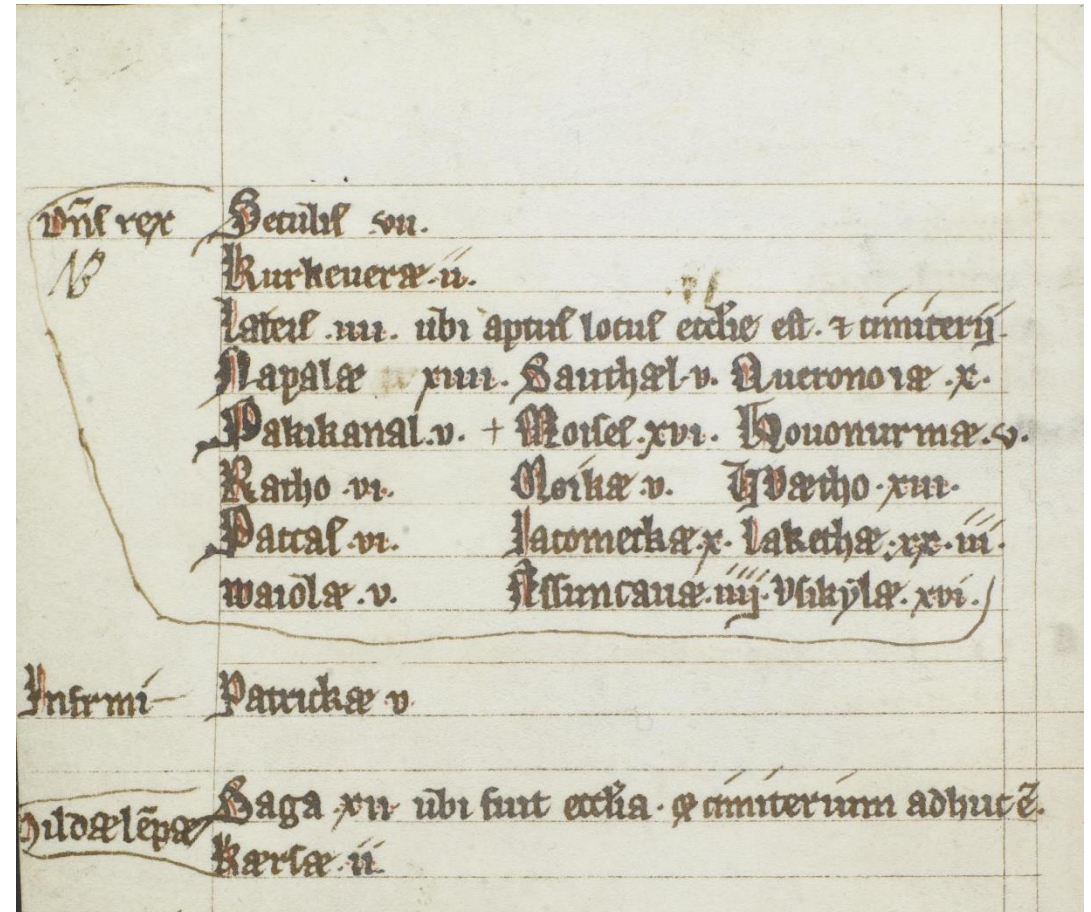 Dn̄s rex Seculis .vii.
NB Kurkeueræ .ii.
Lateis .iiii. ubi aptus locus eccl̄ie est. ⁊ cimiterij.
Napalæ xiiii. Sauthæl .v. Aueronoiæ .x.
Pakikanal .v. + Moises .xvi. Houonurmæ .v.
Ratho .vi. Noikæ .v. Wætho .xiii.
Pattas .vi. Jacomeckæ .x. Lakethæ .xx.iii.
Waiolæ .v. Assuncauæ .iiij. Vsikylæ .xvi.
Infirmi Patrickæ .v
Hildælēpæ Saga .xii. ubi fuit eccl̄ia. ⁊ cimiterium adhuc ē.
Kærsæ .ii.